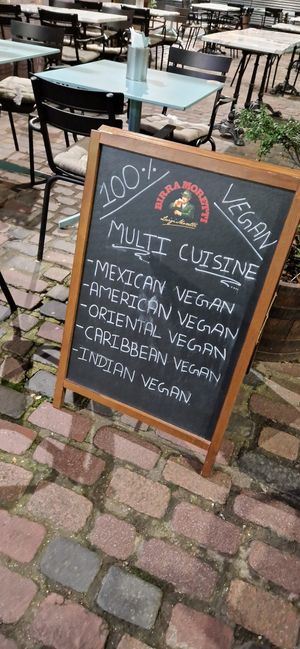 100%
VEGAN
BIRRA MORETTI
MULTI CUISINE
-MEXICAN VEGAN
-AMERICAN VEGAN
-ORIENTAL VEGAN
-CARIBBEAN VEGAN
-INDIAN VEGAN